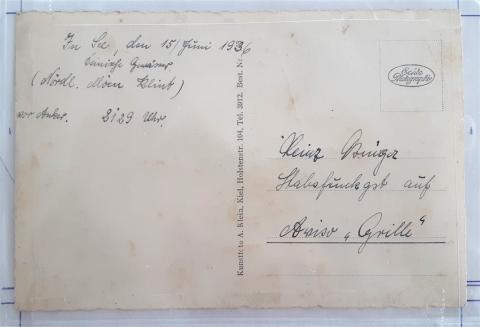 In See, den 15/Juni 1936
dänische Gewässer
(Nördl. Möen Klint)
vor Anker. 2129 Uhr.
Kunstfoto A. Klein, Kiel, Holstenstr. 104, Tel. 3912. Best. Nr.
Echte
Photographie
Heinz
Stabsfunkgst auf
Aviso „Grille“